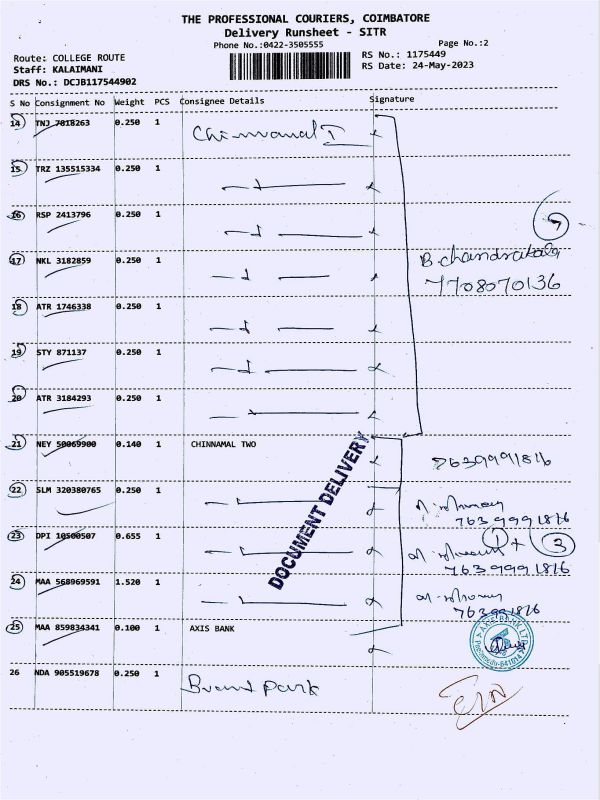 THE PROFESSIONAL COURIERS, COIMBATORE
Delivery Runsheet - SITR
Phone No.:0422-3505555
Page No.:2
Route: COLLEGE ROUTE
RS No.: 1175449
Staff: KALAIMANI
RS Date: 24-May-2023
DRS No.: DCJB117544902
S No Consignment No Weight PCS Consignee Details Signature
14 TNJ 7818263 0.250 1 Chinnamal I
15 TRZ 135515334 0.250 1
16 RSP 2413796 0.250 1
7
17 NKL 3182859 0.250 1 B.chandrakala
7708070136
18 ATR 1746338 0.250 1
19 STY 871137 0.250 1
20 ATR 3184293 0.250 1
21 NEY 50069900 0.140 1 CHINNAMAL TWO
7639991816
DOCUMENT DELIVERY
22 SLM 320380765 0.250 1
7639991876
23 DPI 10500507 0.655 1
1 + 3
7639991876
24 MAA 568969591 1.520 1
25 MAA 859834341 0.100 1 AXIS BANK
AXIS BANK LTD
26 NDA 905519678 0.250 1